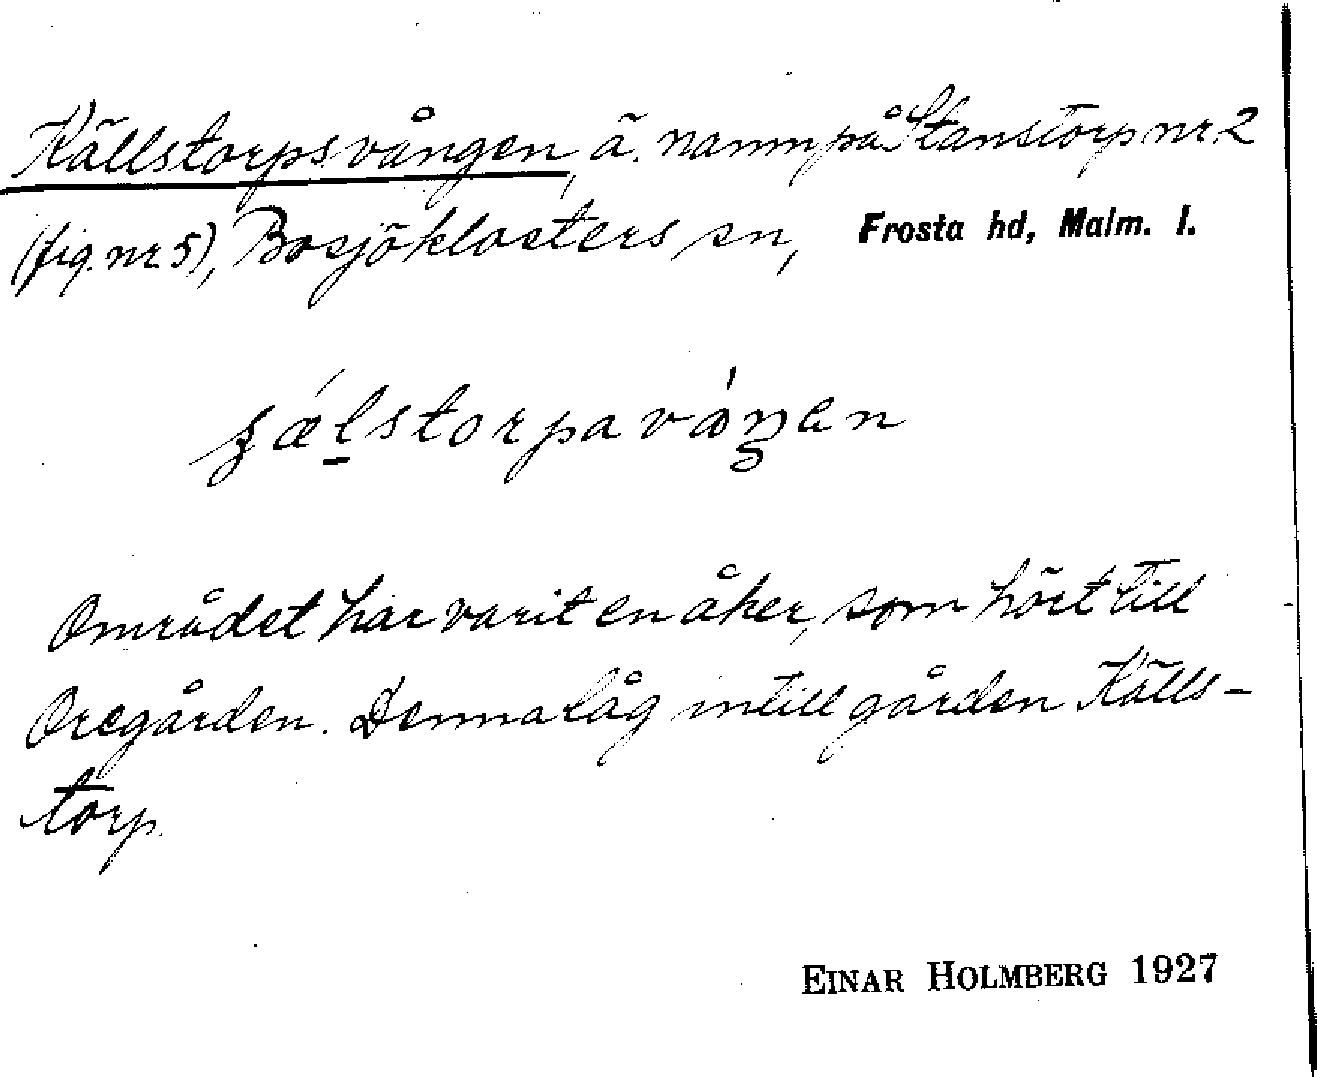 Källstorpsvången, ä. namn på Stanstorp nr 2
(fig. nr 5), Bosjöklosters sn, Frosta hd, Malm. l.
Området har varit en åker, som hört till
Oregården. Denna låg intill gården Källs-
torp.
EINAR HOLMBERG 1927